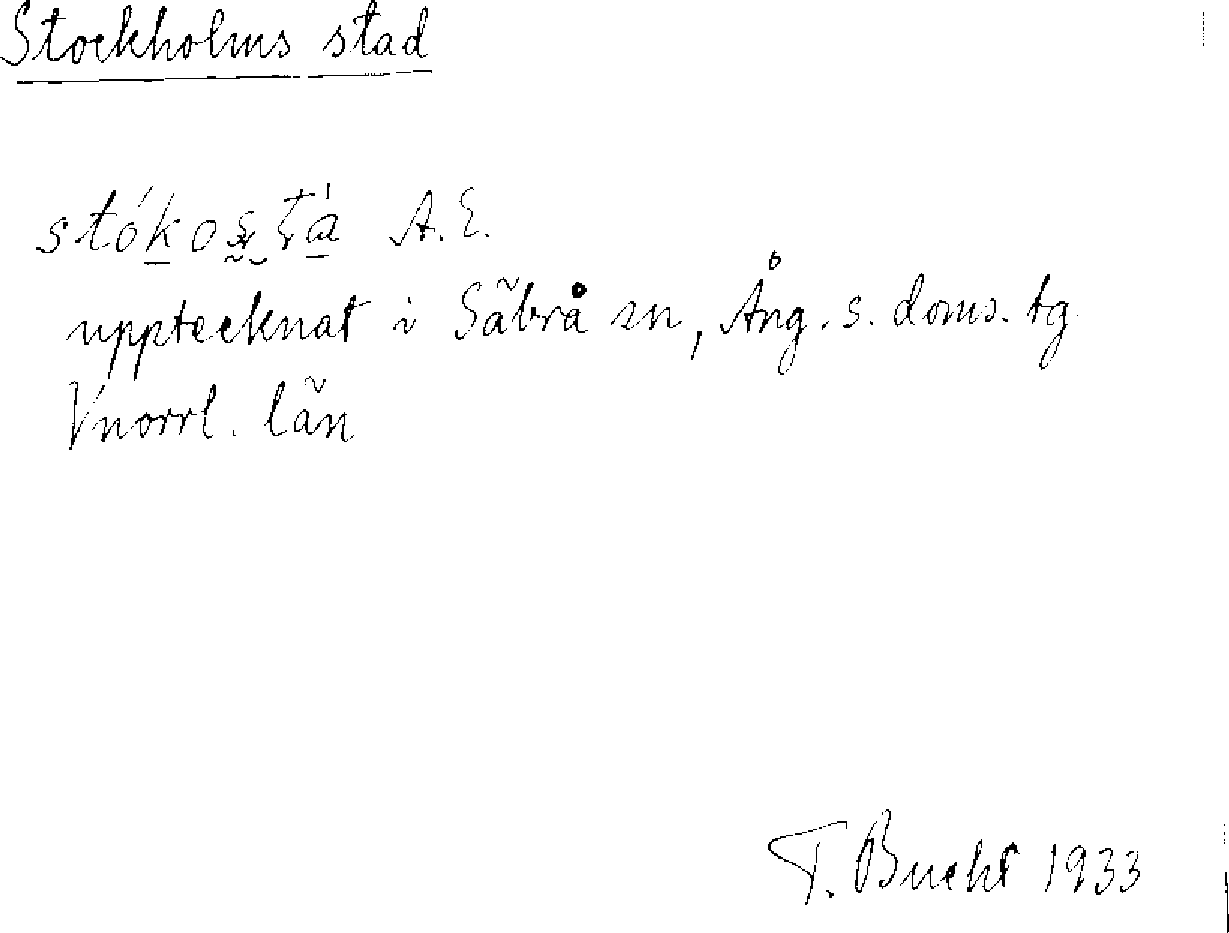 Stockholms stad
stókoʂʈá A.E.
upptecknat i Säbrå sn, Ång. s. doms. tg
Vnorrl. län
T. Bucht 1933